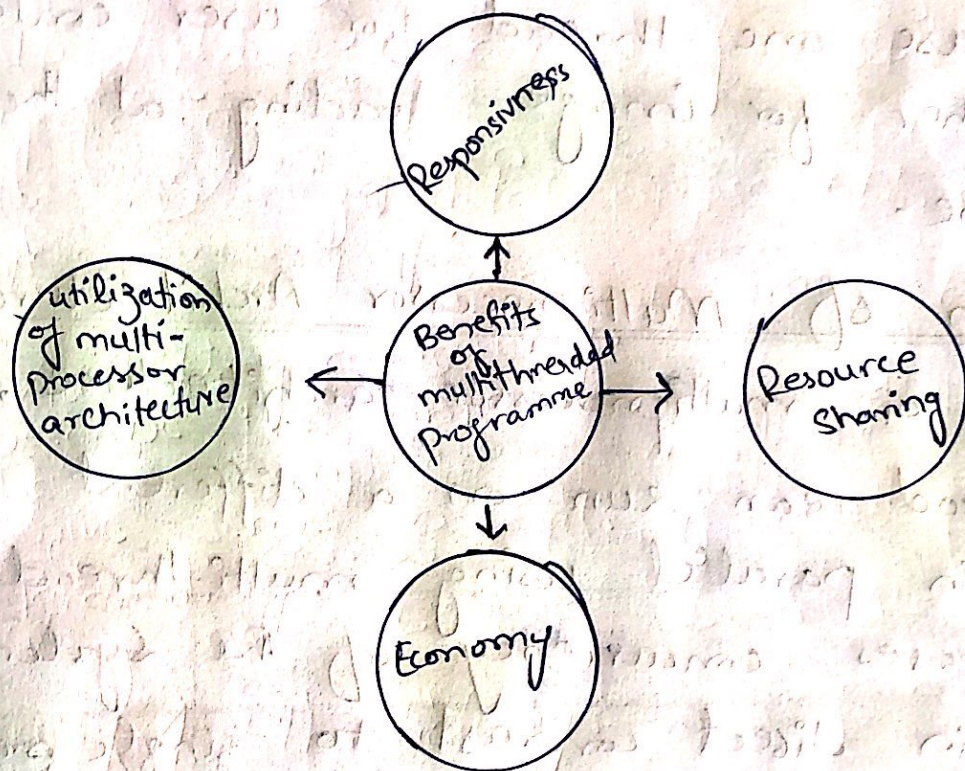 Responsivness
utilization
of multi-
processor
architecture
Benefits
of
multithreaded
programme
Resource
Sharing
Economy